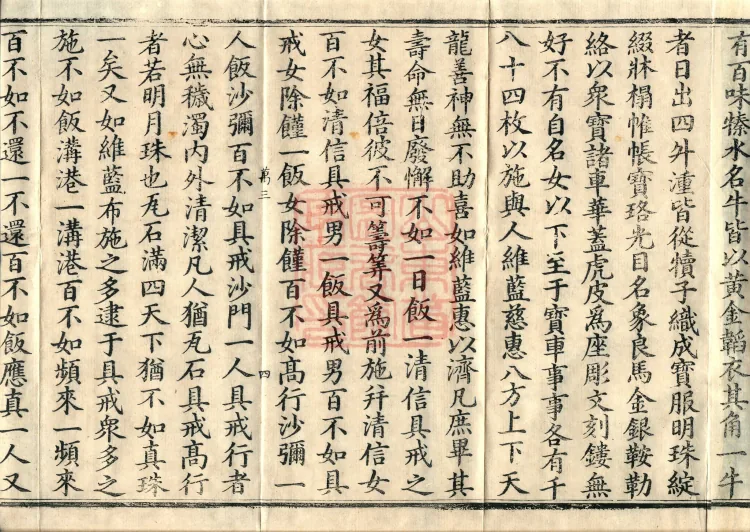 有百味㮈水名牛皆以黃金韜衣其角一牛
者日出四升湩皆從犢子織成寶服明珠綻
綴牀榻帷帳寶珞光目名象良馬金銀鞍勒
絡以眾寶諸車華蓋虎皮為座彫文刻鏤無
好不有自名女以下至于寶車事事各有千
八十四枚以施與人維藍慈惠八方上下天
龍善神無不助喜如維藍惠以濟凡庶畢其
壽命無日廢懈不如一日飯一清信具戒之
女其福倍彼不可籌算又為前施并清信女
百不如清信具戒男一飯具戒男百不如具
戒女除饉一飯女除饉百不如高行沙彌一
萬三
四
人飯沙彌百不如具戒沙門一人具戒行者
心無穢濁內外清潔凡人猶瓦石具戒高行
者若明月珠也瓦石滿四天下猶不如真珠
一矣又如維藍布施之多逮于具戒眾多之
施不如飯溝港一溝港百不如頻來一頻來
百不如不還一不還百不如飯應真一人又